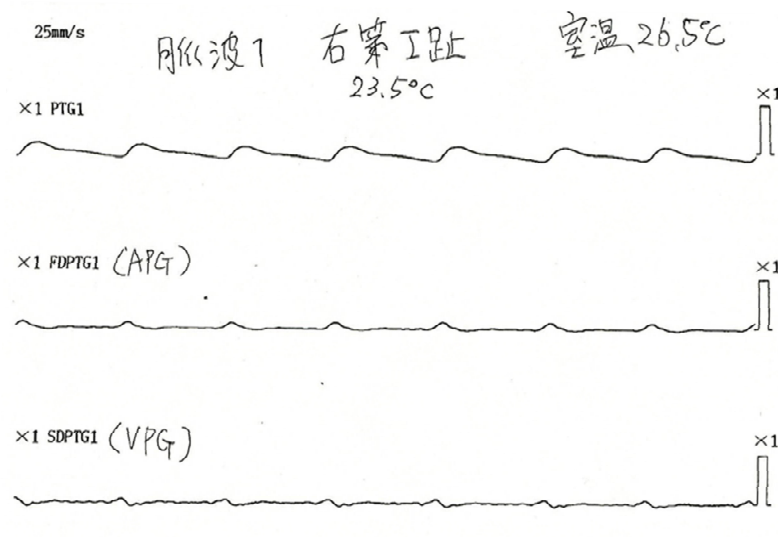 25mm/s
脈波1 右第I趾 室温 26.5℃
23.5℃
×1 PTG1
×1
×1 FDPTG1 (APG)
×1
×1 SDPTG1 (VPG)
×1